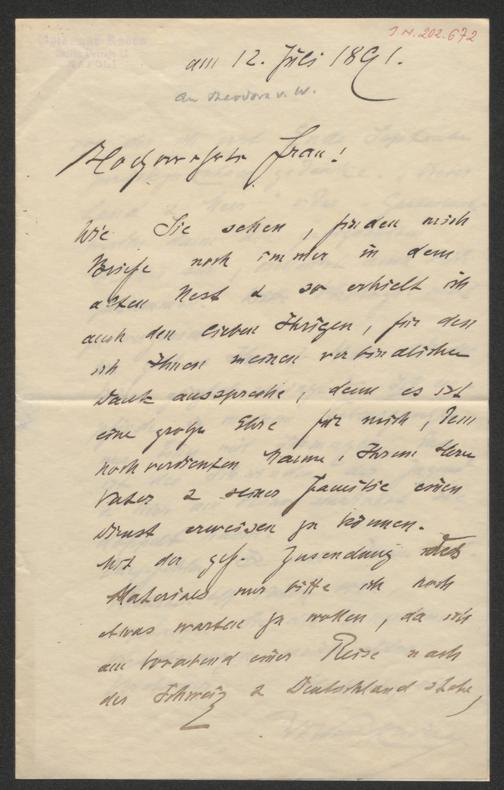 J.N. 202.672
NAPOLI
am 12. Juli 1891.
An Theodora v. W.
Hochverehrte Frau!
Wie Sie sehen, finden mich
Briefe noch immer in dem
alten Nest & so erhielt ich
auch den lieben Ihrigen, für den
ich Ihnen meinen verbindlichen
Dank ausspreche, denn es ist
eine große Ehre für mich, dem
hochverdienten Manne, Ihrem Herrn
Vater & seiner Familie einen
Dienst erweisen zu können.
Mit der gef. Zusendung des
Materials nur bitte ich noch
etwas warten zu wollen, da ich
am Vorabend einer Reise nach
der Schweiz & Deutschland stehe,